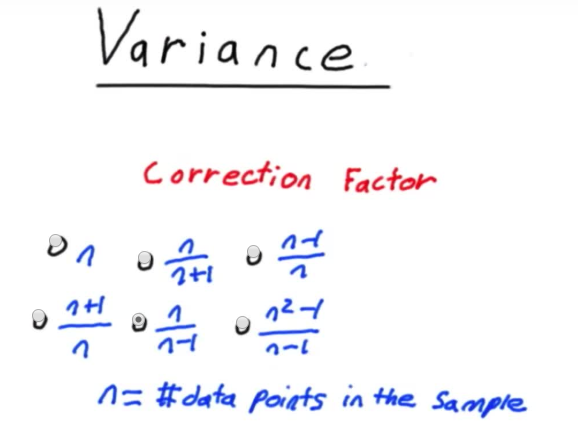 Variance
Correction Factor
n n/n+1 n-1/n
n+1/n n/n-1 n²-1/n-1
n = # data points in the sample